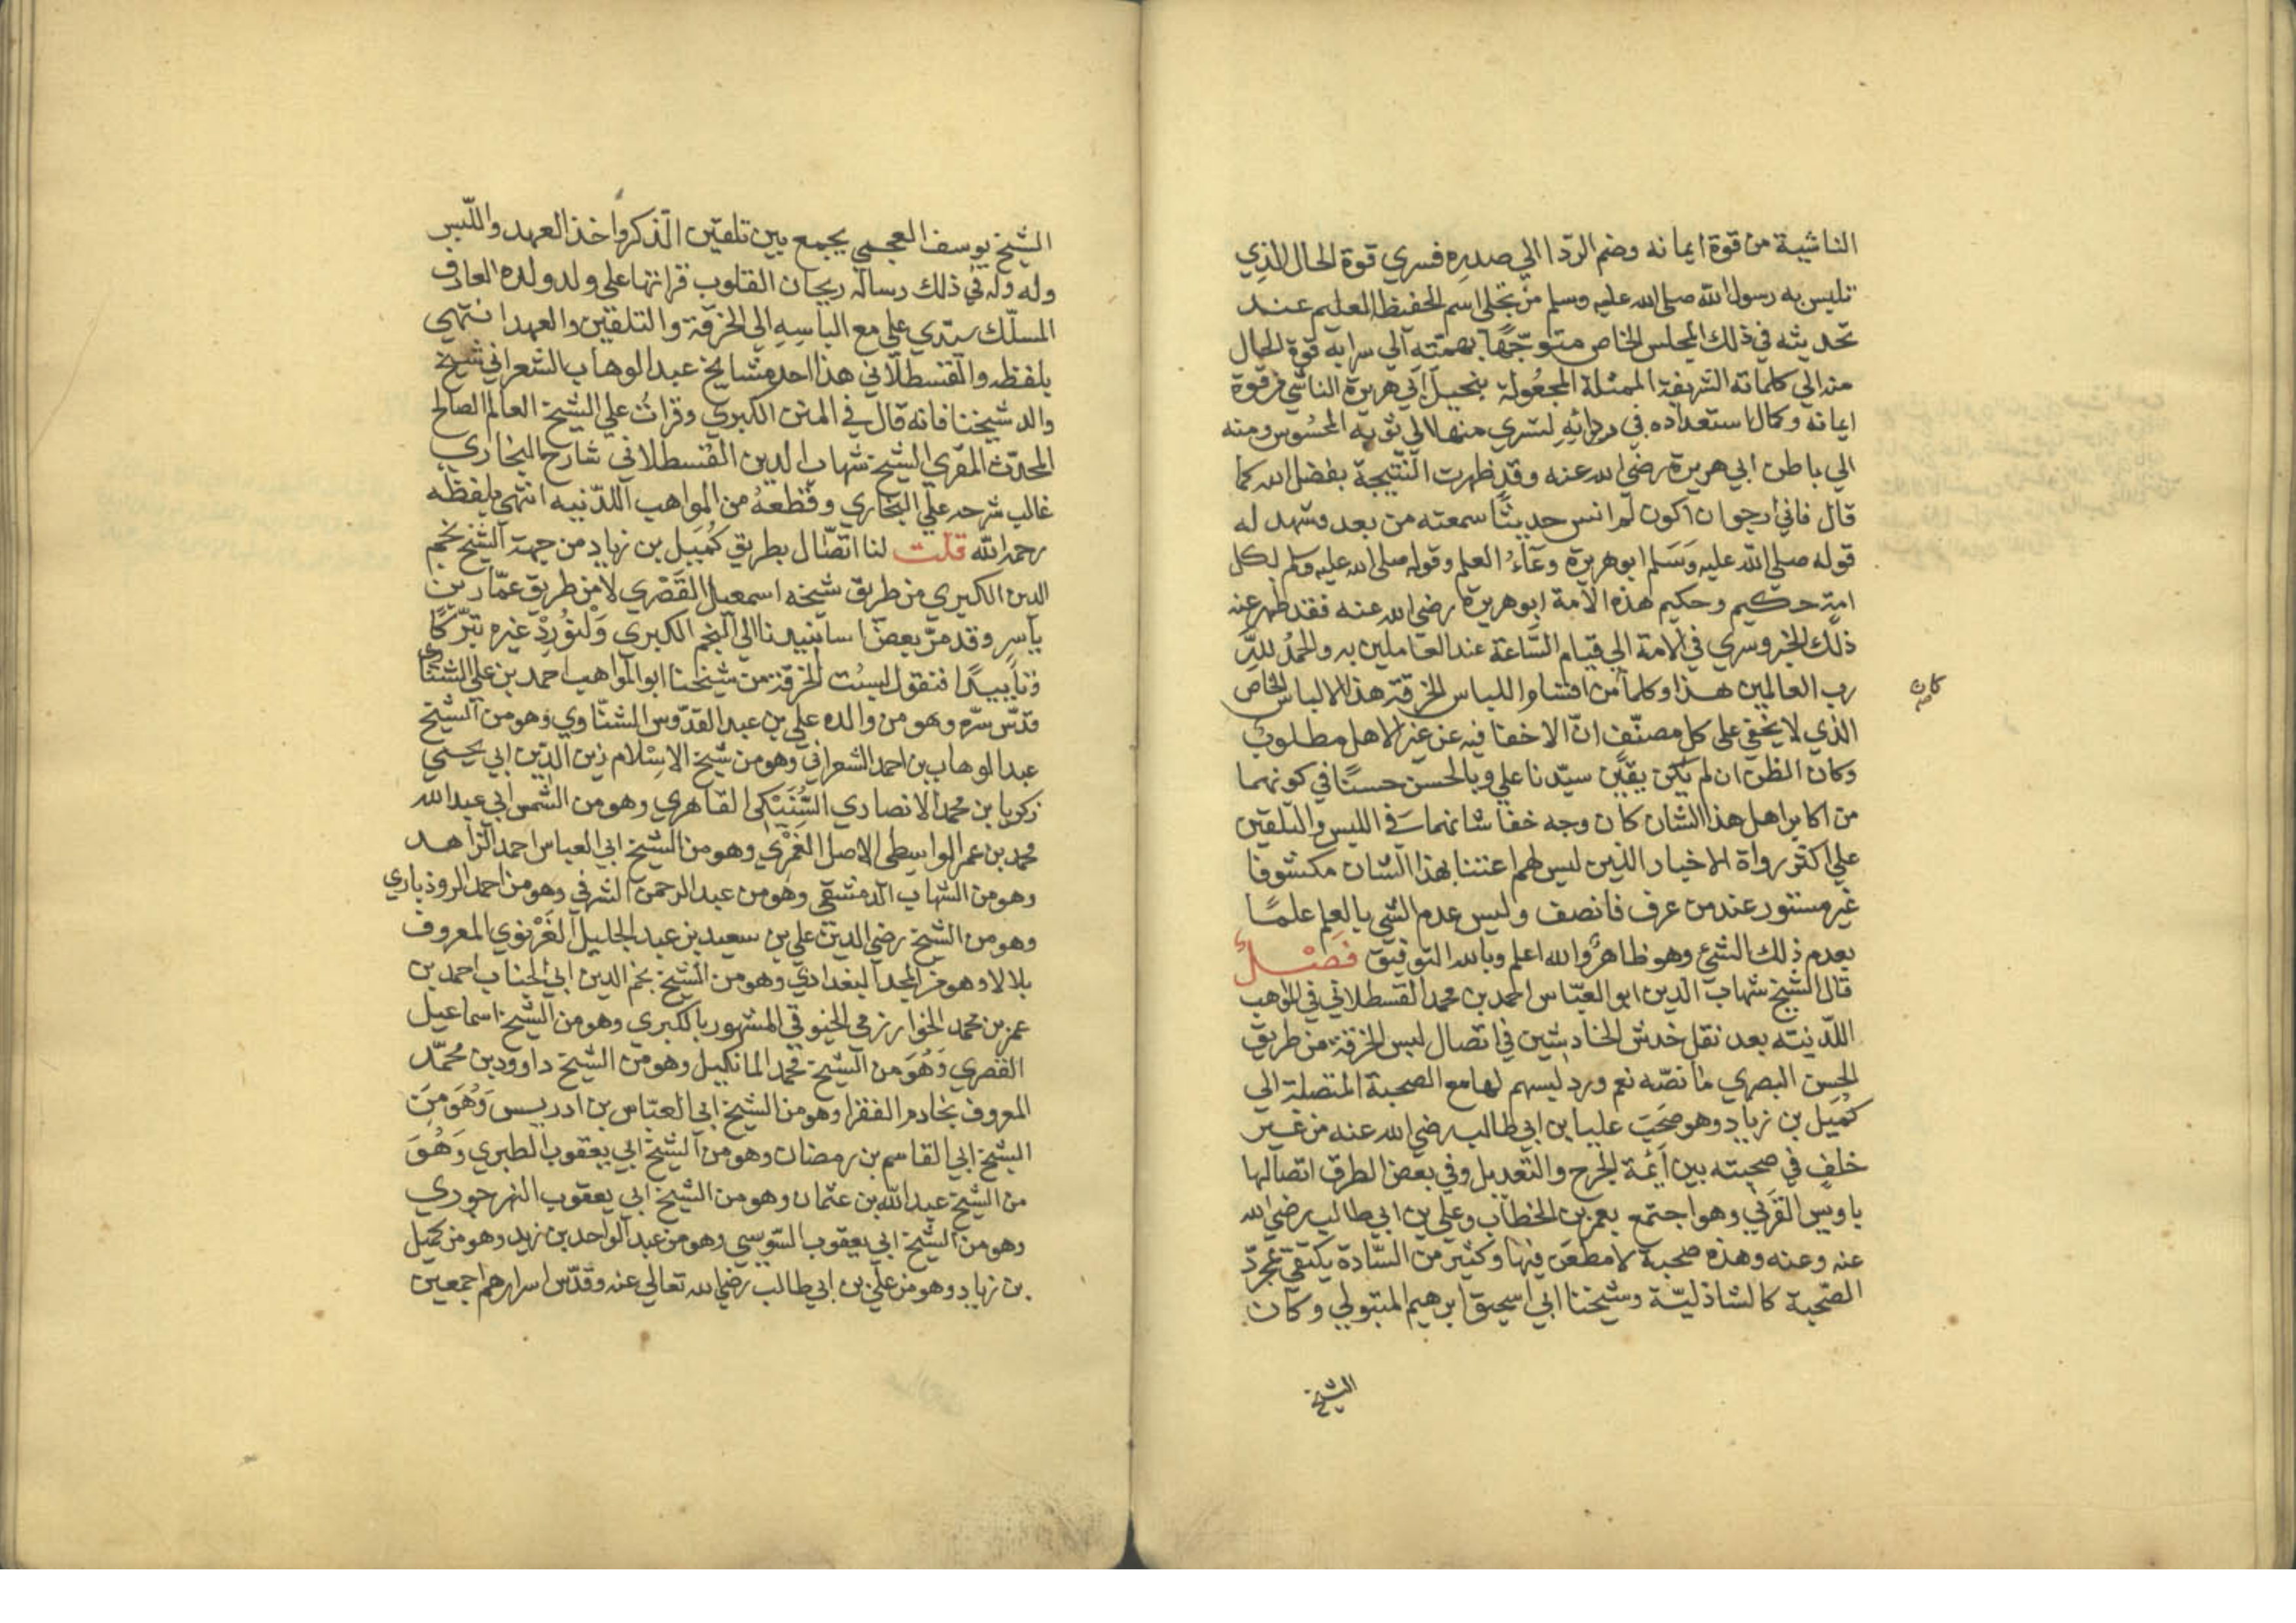 الناشية من قوة ايمانه وضم الردا الي صدره فسري قوة الحال الذي
تلبس به رسول الله صلى الله عليه وسلم من تجلي اسم الحفيظ العليم عند
تحديثه في ذلك المجلس الخاص متوجّهًا بهمته الي سراية قوة الحال
منه الي كلماته الشريفة الممثلة المجعولة بتخييل ابي هريرة الناشي من قوة
ايمانه وكمال استعداده في ردائه لتسري منها الي ثوبه المحسوس ومنه
الي باطن ابي هريرة رضي الله عنه وقد ظهرت النتيجة بفضل الله كما
قال فاني ارجوا ان اكون لم انس حديثًا سمعته من بعد وشهد له
قوله صلي الله عليه وسلم ابو هريرة وعاءُ العلم وقوله صلى الله عليه وسلم لكل
امة حكيم وحكيم هذه الامة ابو هريرة رضي الله عنه فقد ظهر عنه
ذلك الخبر وسري في الامة الي قيام السّاعة عند العاملين به والحمدُ للهِ
رب العالمين هذا وكلما من افشاوا اللباس الخرقة هذا الالباس الخاص
كان
الذي لا يخفي على كل مصنّف انّ الاخفا فيه عن غير الاهل مطلوبٌ
وكان الظن ان لم يكن يقين سيّدنا علي وبالحسن حسنًا في كونهما
من اكابر اهل هذا الشان كان وجه خفا شانهما في اللبس والتلقين
علي اكثر رواة الاخبار الذين ليس لهم اعتنا بهذا الشان مكشوفا
غير مستور عند من عرف فانصف وليس عدم الشي بالعلم علمًا
بعدم ذلك الشئ وهو ظاهرٌ والله اعلم وبالله التوفيق فَصْلٌ
قال الشيخ شهاب الدين ابو العبّاس احمد بن محمد القسطلاني في المواهب
اللدنيّه بعد نقل خدش الخادشين في اتصال لبس الخرقة من طريق
الحسن البصري ما نصّه نعم ورد لبسهم لها مع الصحبة المتصلة الي
كُمَيل بن زياد وهو صَحِبَ عليا بن ابي طالب رضي الله عنه من غير
خلفٍ في صحبته بين ائمة الجرح والتعديل وفي بعض الطرق اتصالها
باويس القَرَني وهو اجتمع بعمر بن الخطاب وعلي بن ابي طالب رضي الله
عنه وعنه وهذه صحبة لا مطعن فيها وكثير من السّادة يكتفي بمجردّ
الصّحبة كالشاذليّة وشيخنا ابي اسحق ابرهيم المتبولي وكان
الشيخ
الشيخ يوسف العجمي يجمع بين تلقين الذكر واخذ العهد واللّبس
وله وله في ذلك رسالة ريحان القلوب قراتها علي ولد ولده العارف
المسلّك سيّدي علي مع الباسه الي الخرقة والتلقين والعهد انتهي
بلفظه والقسطلاني هذا احد مشايخ عبد الوهاب الشعراني شيخ
والد شيخنا فانه قال في المنن الكبري وقراتُ علي الشيخ العالم الصالح
المحدّث المقري الشيخ شهاب الدين القسطلاني شارح البخاري
غالب شرحه علي البخاري وقطعةً من المواهب اللدّنيه انتهي بلفظه
رحمه الله قلت لنا اتصّال بطريق كُمَيل بن زياد من جهة الشيخ نجم
الدين الكبري من طريق شيخه اسمعيل القَصْري لا من طريق عمّار بن
ياسر وقد مرّ بعض اسانيدنا الي النجم الكبري وَلْنُورِدْ غيره تبرّكًا
وتاييدًا فنقول لبست الخرقة من شيخنا ابو المواهب احمد بن علي الشنّاوي
قدّس سرّه وهو من والده علي بن عبد القدّوس الشنّاوي وهو من الشيخ
عبد الوهاب بن احمد الشعراني وهو من شيخ الاسْلام زين الدّين ابي يحيي
زكريا بن محمد الانصاري السُّنَيْكى القاهري وهو من الشمس ابي عبد الله
محمد بن عمر الواسطي الاصل الغَمْري وهو من الشيخ ابي العباس احمد الزاهد
وهو من الشهاب الدمشقي وهو من عبد الرحمن الشرفي وهو من احمد الروذباري
وهو من الشيخ رضي الدين علي بن سعيد بن عبد الجليل الغَزْنوي المعروف
بلالا وهو من المجد البغدادي وهو من الشيخ نجم الدين ابي الجناب احمد بن
عمر بن محمد الخوارزمي الخيوقي المشهور بالكبري وهو من الشيخ اسماعيل
القصري وَهُوَ من الشيخ محمد المانكيل وهو من الشيخ داوود بن محمّد
المعروف بخادم الفقرا وهو من الشيخ ابي العبّاس بن ادريس وَهُوَ مِنَ
الشيخ ابي القاسم بن رمضان وهو من الشيخ ابي يعقوب الطبري وَهُوَ
من الشيخ عبد الله بن عثمان وهو من الشيخ ابي يعقوب النهرجوري
وهو من الشيخ ابي يعقوب السّوسي وهو من عبد الواحد بن زيد وهو من كميل
بن زياد وهو من علي بن ابي طالب رضي الله تعالي عنه وقدّس اسرارهم اجمعين